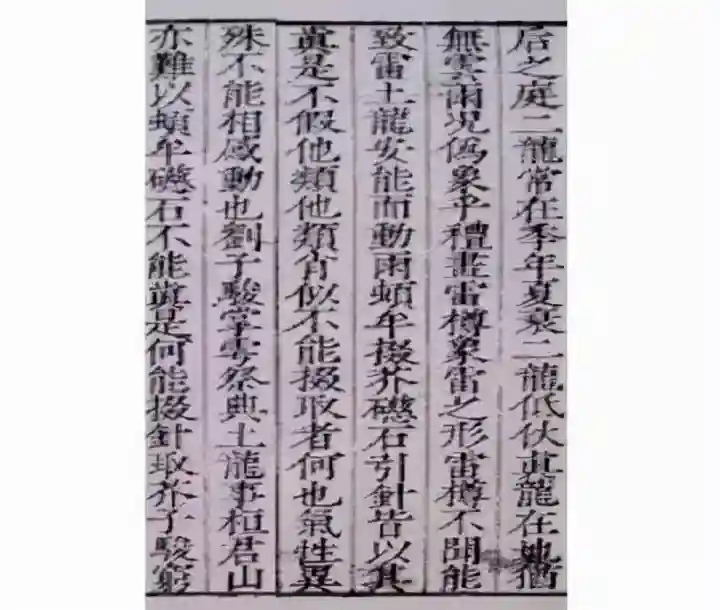 后之庭二龍常在季年夏衰二龍低伏真龍在地猶
無雲雨况僞象乎禮畫雷樽象雷之形雷樽不聞能
致雷土龍安能而動雨頓牟掇芥磁石引針皆以其
眞是不假他類他類肖似不能掇取者何也氣性異
殊不能相感動也劉子駿掌雩祭典土龍事桓君山
亦難以頓牟磁石不能眞是何能掇針取芥子駿窮